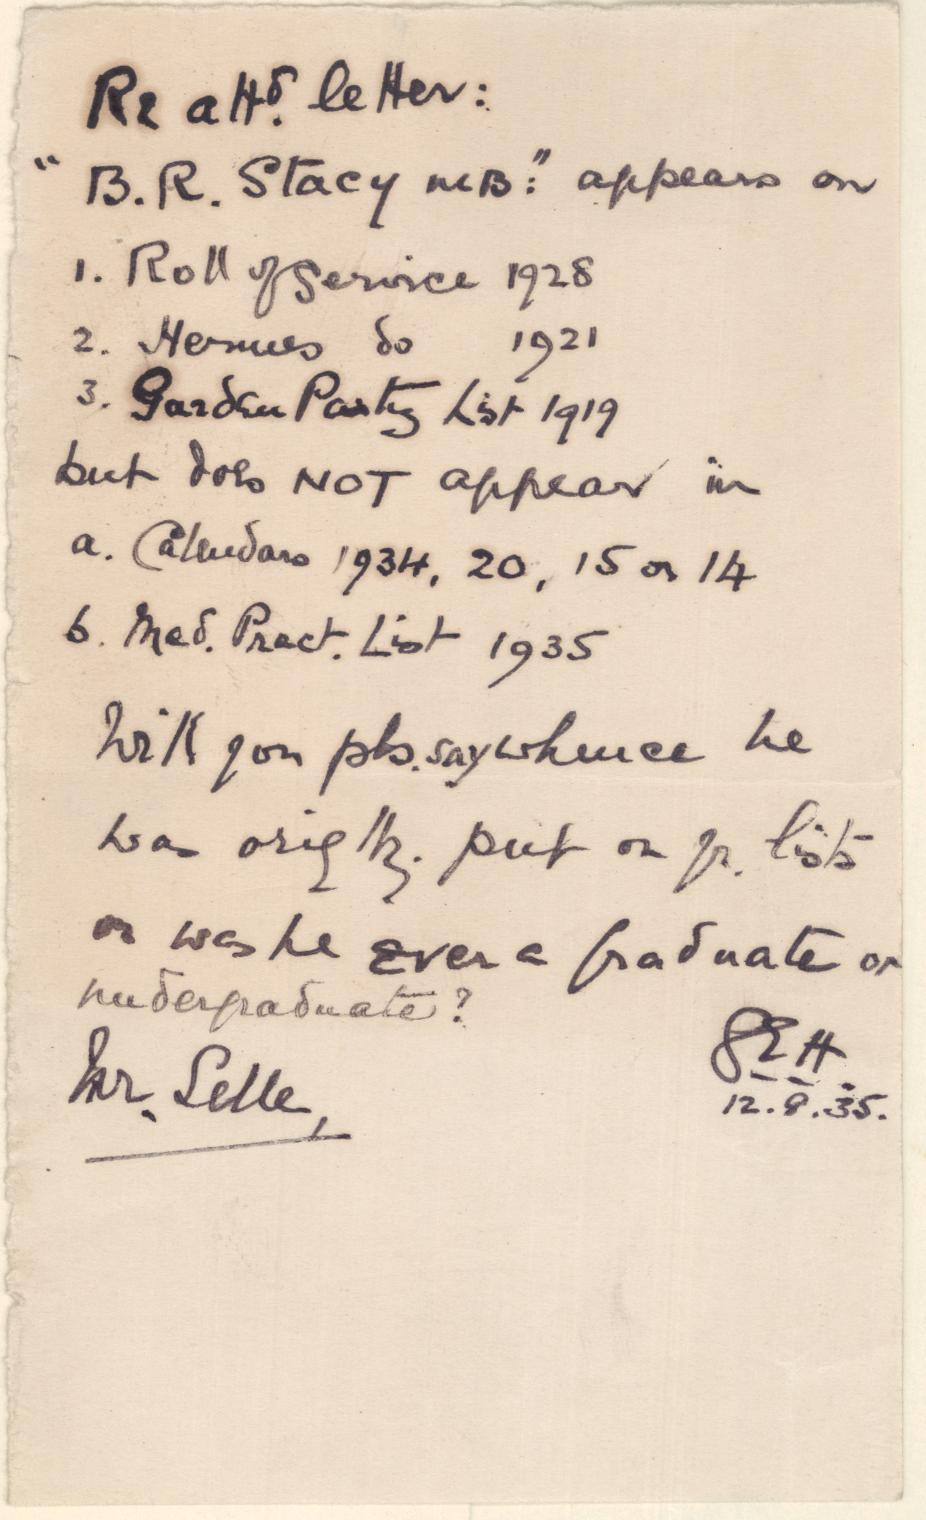 Re attd. letter:
"B.R. Stacy MB." appears on
1. Roll of Service 1928
2. Hermes do 1921
3. Garden Party List 1919
but does NOT appear in
a. Calendars 1934, 20, 15 or 14
b. Med. Pract. List 1935
Will you pls. say whence he
was origlly. put on yr. lists
or was he ever a graduate or
undergraduate?
Mr. Selle,
12.8.35.